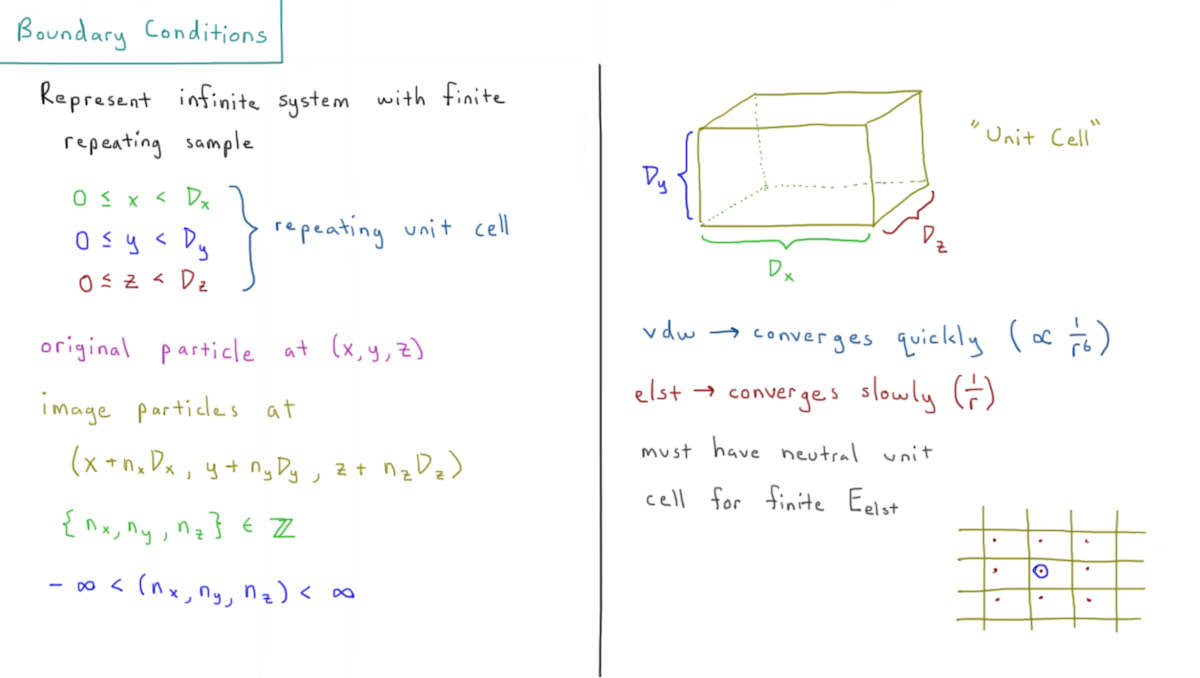 Boundary Conditions
Represent infinite system with finite
repeating sample
0 ≤ x < Dₓ
0 ≤ y < D_y
0 ≤ z < D_z
repeating unit cell
original particle at (x, y, z)
image particles at
(x + nₓDₓ, y + n_yD_y, z + n_zD_z)
{nₓ, n_y, n_z} ∈ ℤ
-∞ < (nₓ, n_y, n_z) < ∞
"Unit Cell"
D_y
D_z
Dₓ
vdw → converges quickly (∝ 1/r⁶)
elst → converges slowly (1/r)
must have neutral unit
cell for finite E_elst